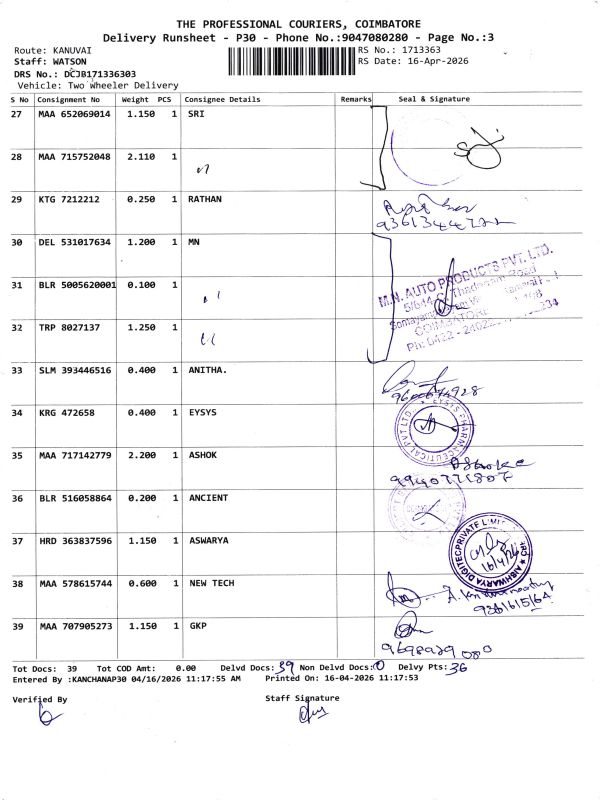 THE PROFESSIONAL COURIERS, COIMBATORE
Delivery Runsheet - P30 - Phone No.:9047080280 - Page No.:3
Route: KANUVAI
RS No.: 1713363
Staff: WATSON
RS Date: 16-Apr-2026
DRS No.: DCJB171336303
Vehicle: Two Wheeler Delivery
S No Consignment No Weight PCS Consignee Details Remarks Seal & Signature
27 MAA 652069014 1.150 1 SRI
28 MAA 715752048 2.110 1
29 KTG 7212212 0.250 1 RATHAN
30 DEL 531017634 1.200 1 MN
M.N. AUTO PRODUCTS PVT. LTD.
31 BLR 5005620001 0.100 1
COIMBATORE
32 TRP 8027137 1.250 1
33 SLM 393446516 0.400 1 ANITHA.
34 KRG 472658 0.400 1 EYSYS
35 MAA 717142779 2.200 1 ASHOK
Ashoke
36 BLR 516058864 0.200 1 ANCIENT
37 HRD 363837596 1.150 1 ASWARYA
AISHWARYA DIGITEC PRIVATE LIMITED
16/4/26
38 MAA 578615744 0.600 1 NEW TECH
9361615164
39 MAA 707905273 1.150 1 GKP
9698929080
Tot Docs: 39 Tot COD Amt: 0.00 Delvd Docs: 39 Non Delvd Docs: 0 Delvy Pts: 36
Entered By :KANCHANAP30 04/16/2026 11:17:55 AM Printed On: 16-04-2026 11:17:53
Verified By
Staff Signature